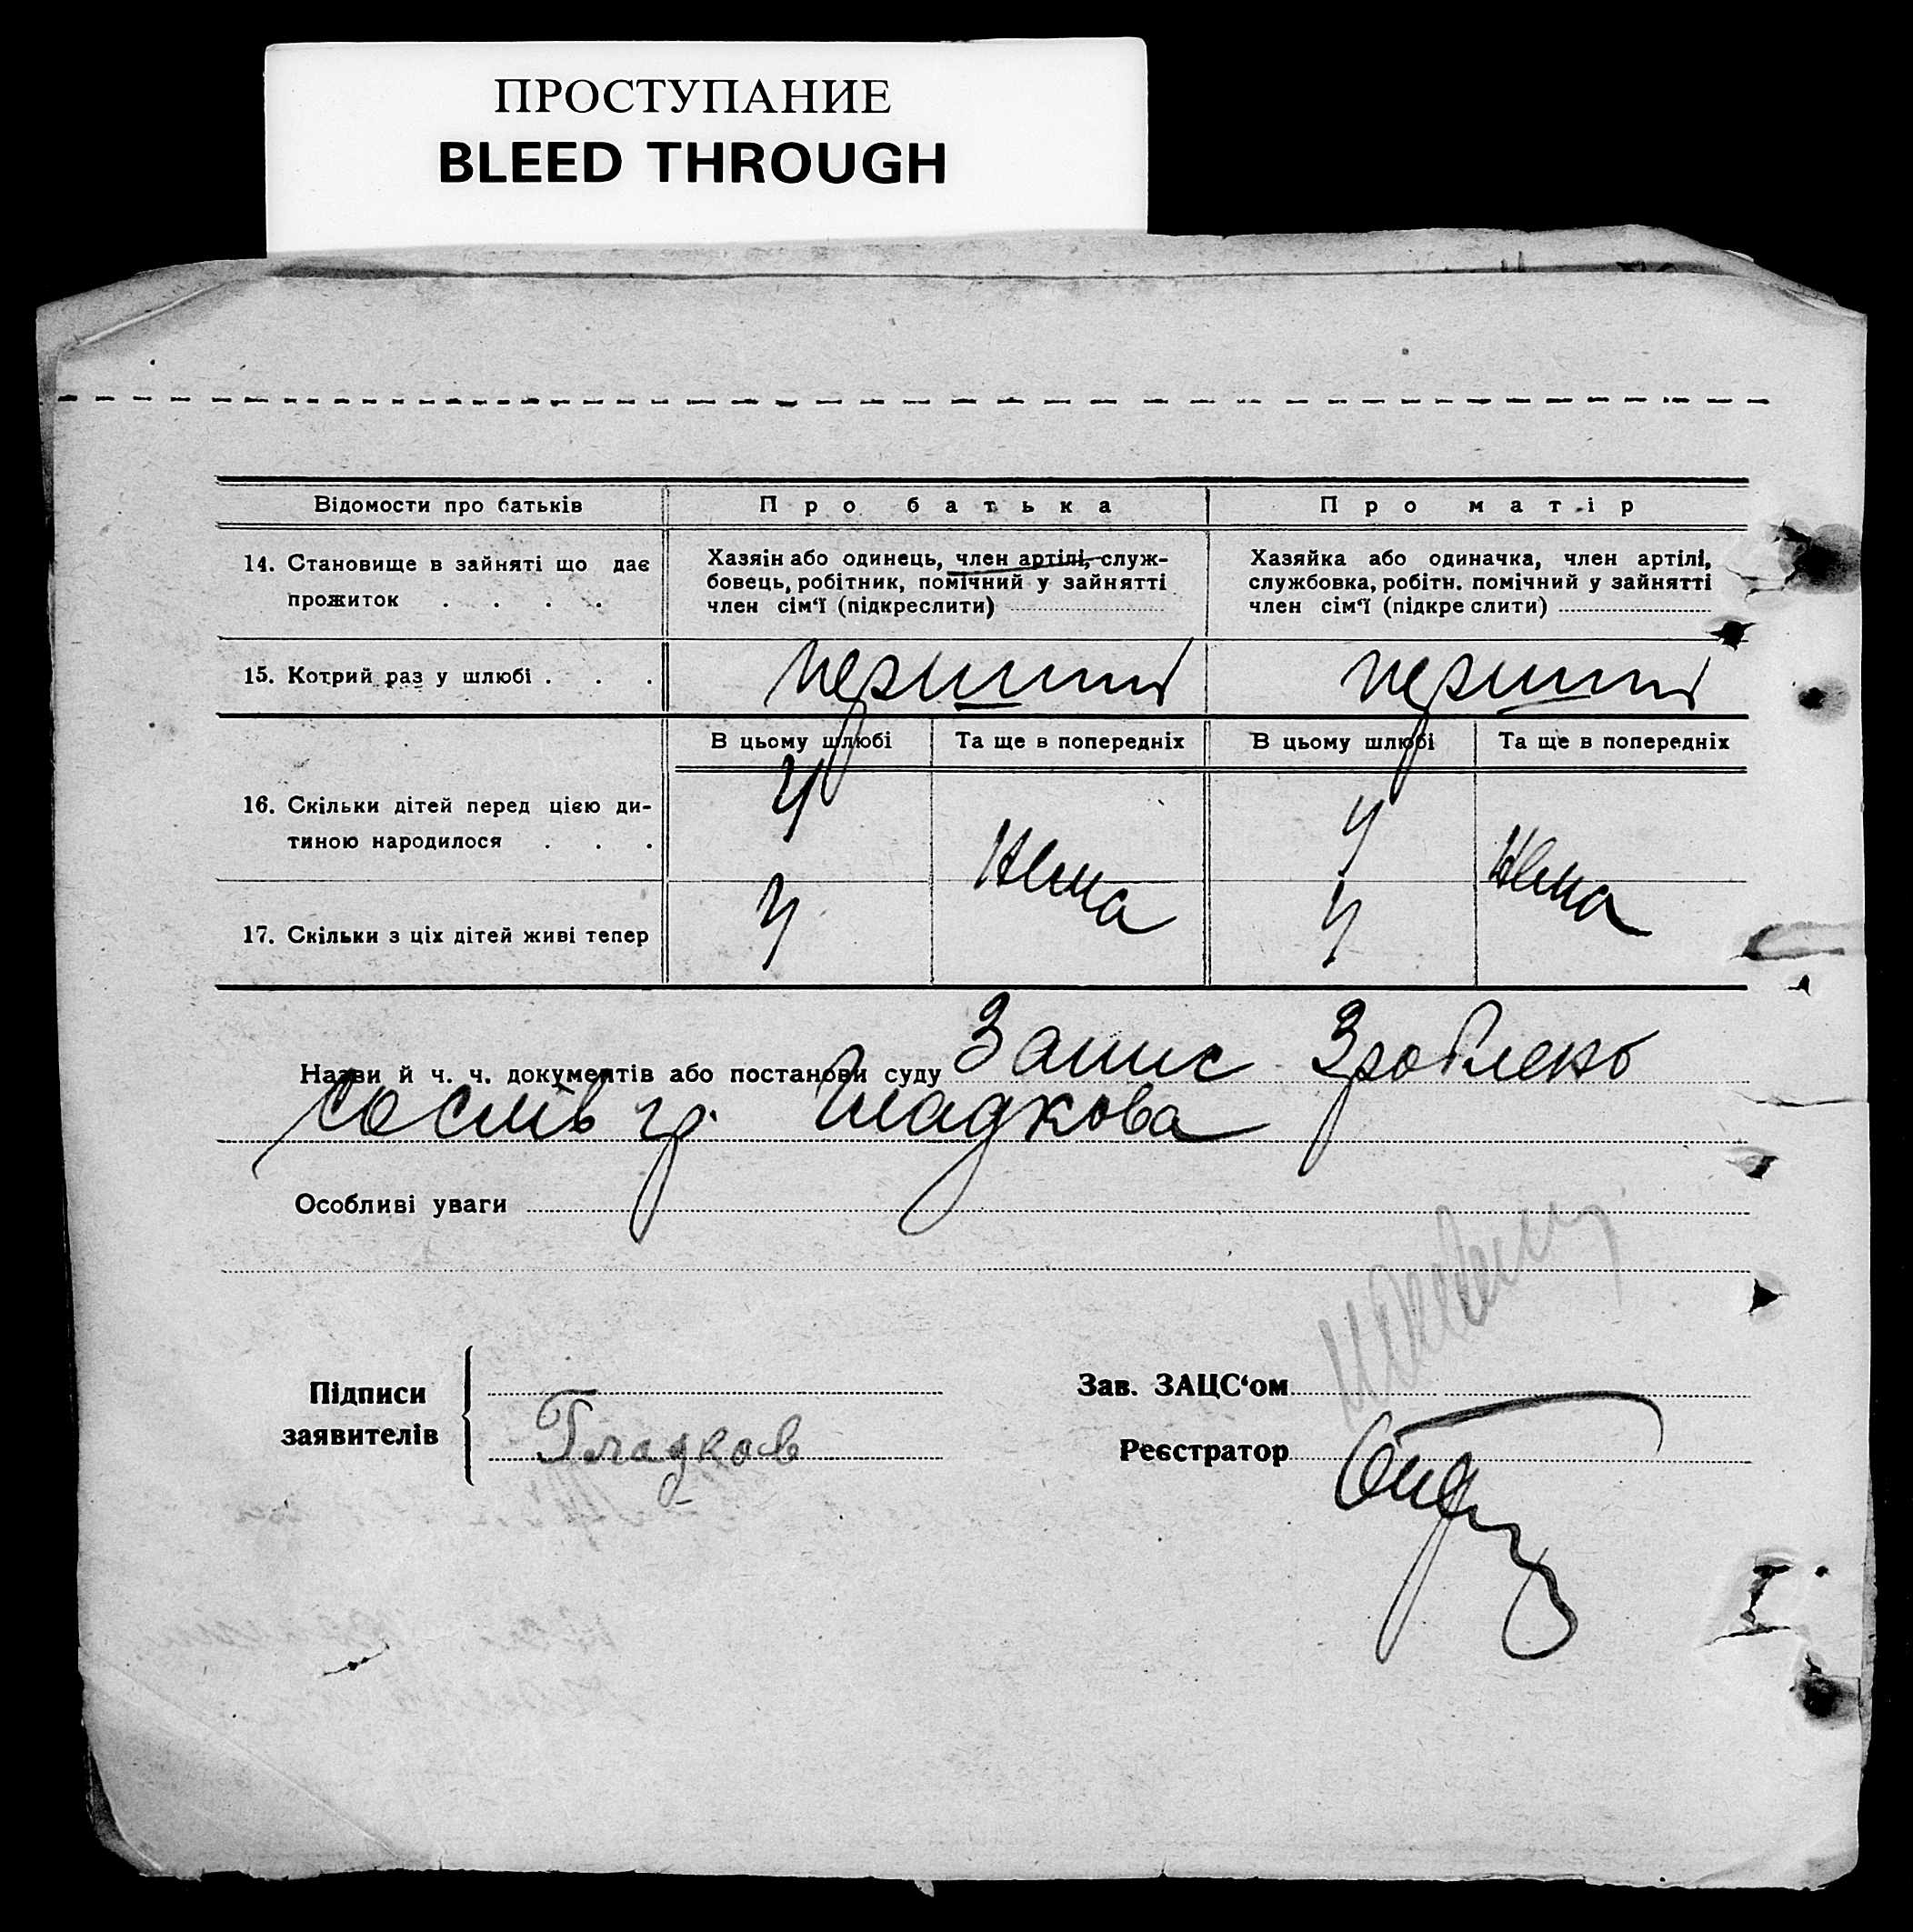 ПРОСТУПАНИЕ
BLEED THROUGH
Відомости про батьків
Про батька
Про матір
14. Становище в зайняті що дає
прожиток . . . .
Хазяїн або одинець, член артілі, служ-
бовець, робітник, помічний у зайнятті
член сім‘ї (підкреслити)
Хазяйка або одиначка, член артілі,
службовка, робітн. помічний у зайнятті
член сім‘ї (підкре слити)
15. Котрий раз у шлюбі . . .
перший
перший
В цьому шлюбі
Та ще в попередніх
В цьому шлюбі
Та ще в попередніх
16. Скільки дітей перед цією ди-
тиною народилося . . .
4
4
17. Скільки з ціх дітей живі тепер
4
Нема
4
Нема
Назви й ч. ч. документів або постанови суду Запис Зроблено
со слів гр. Гладкова
Особливі уваги
Підписи
заявителів
Гладков
Зав. ЗАЦС‘ом
Реєстратор